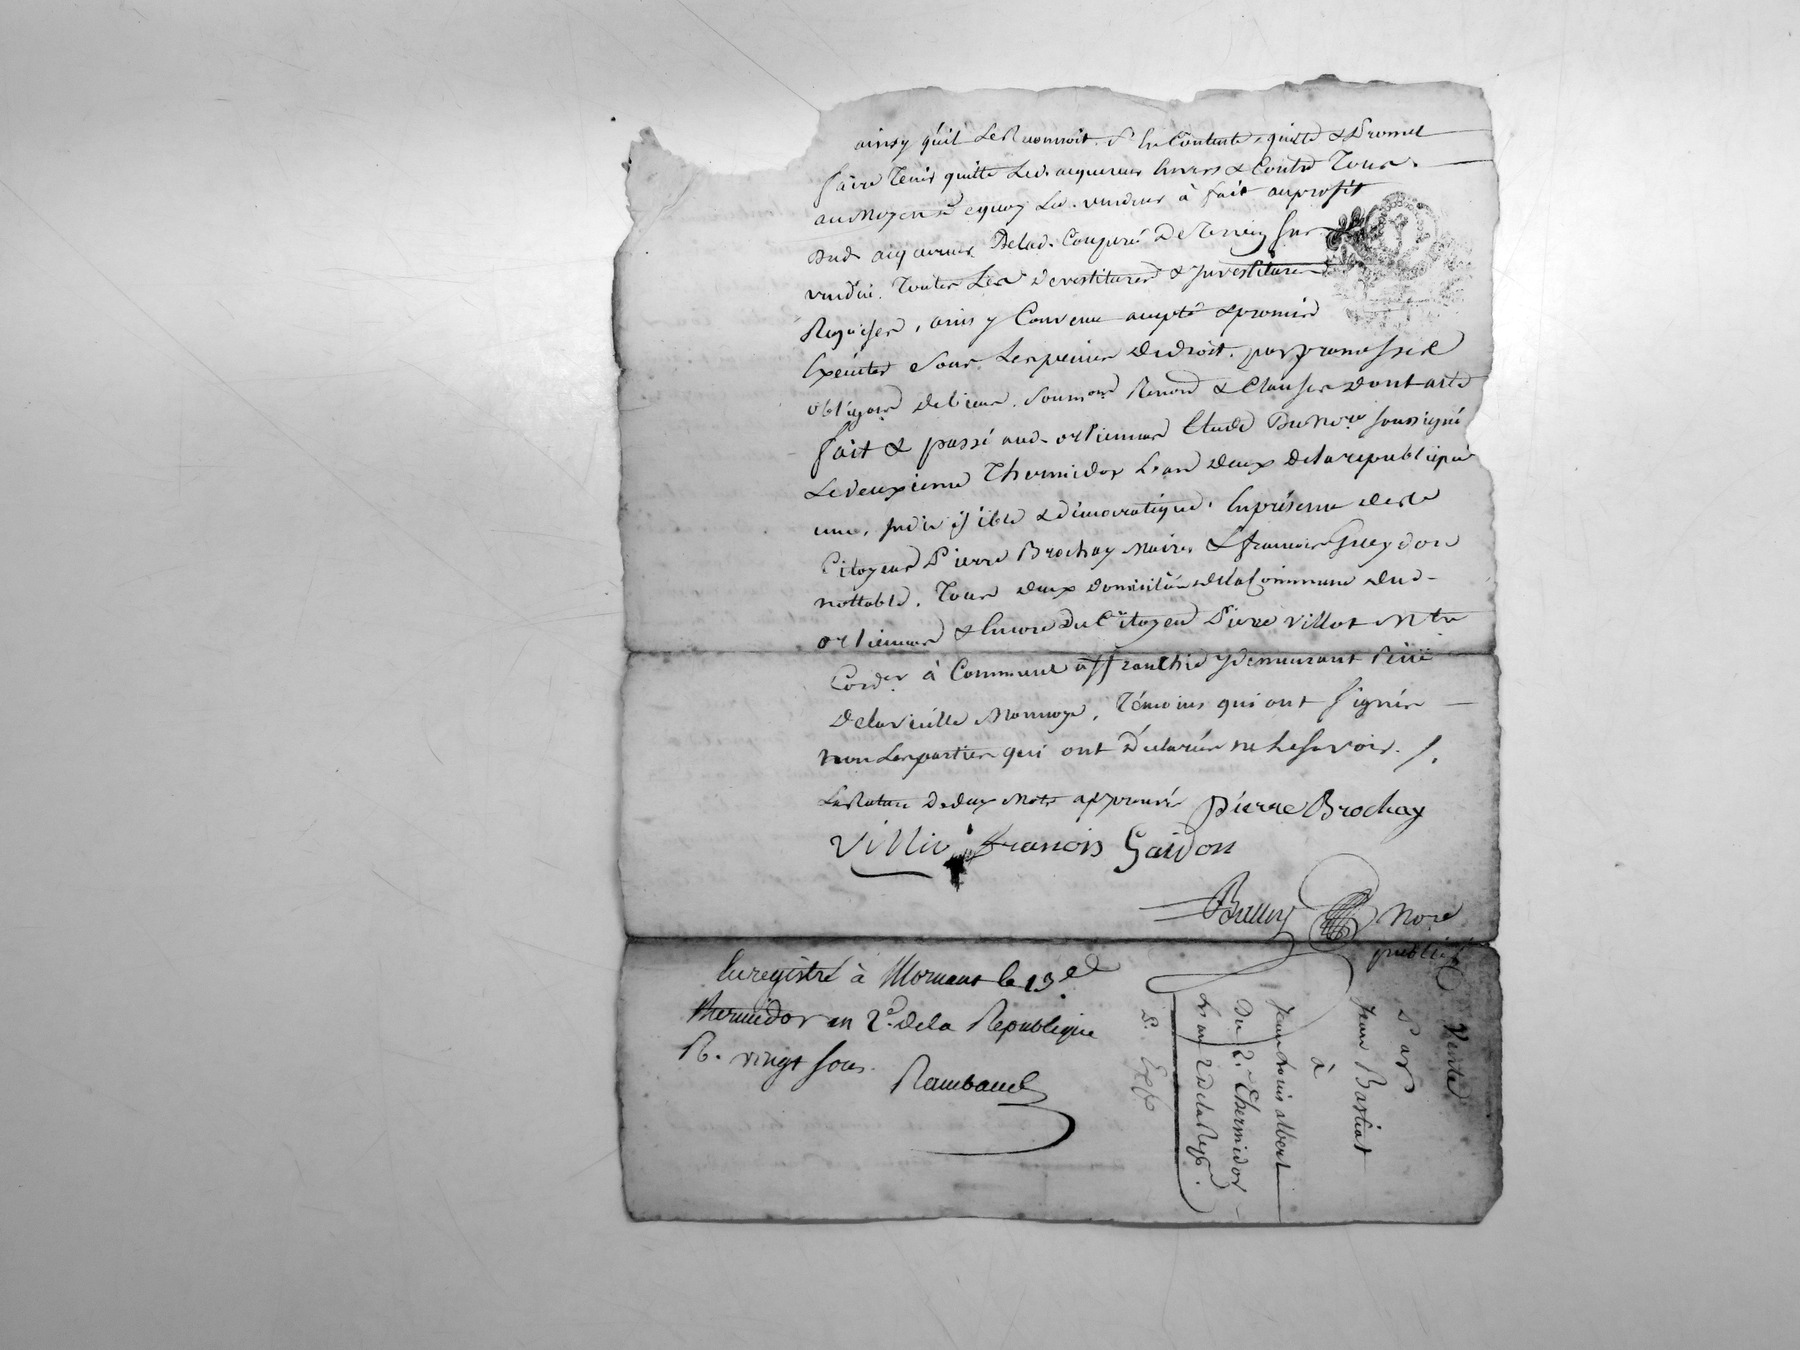 ainsy qu'il le Reconnoit. s'en Contente, quitte & Promet
faire Tenir quitte led. acquereur Envers & Contre Tous.
au Moyen de quoy led. vendeur à fait au profit
dud. acquereur De lad. Couperé De Terrein sus
vendüe. Toutes Les devestitures & Investitures
Requises, ainsy Convenu accepté & promis
Exécuter Sous Les peines de droit. par promesse
obligaõn de biens. Soumõn Renonõn & Clauses dont acte
fait & passé aud. orlienas Etude Du Nore. soussigné
Le deuxieme Thermidor L'an deux de la republique
une, Indivisible & démocratique. En présence des
Citoyens Pierre Brochay Maire, & francois Gueydon
nottable. Tous deux domiciliés de la Commune dud.
orlienas & Encore du Citoyen Pierre Villot Mtre
Corder à Commune affranchie y demeurant Rüe
De la vieille Monnoye, Témoins qui ont signés
non Les parties qui ont Déclarées ne le savoir. /.
La Rature De deux Mots approuvée Pierre Brochay
francois Gaidon
Nore
public
Enregistré à Mornant le 13e
thermidor an 2e. de la Republique
R. vingt sous.
Rambaud
Vente
Par
Jean Bastiat
à
Jean Louis albert
Du 2. Thermidor
L'an 2 De la Rep.